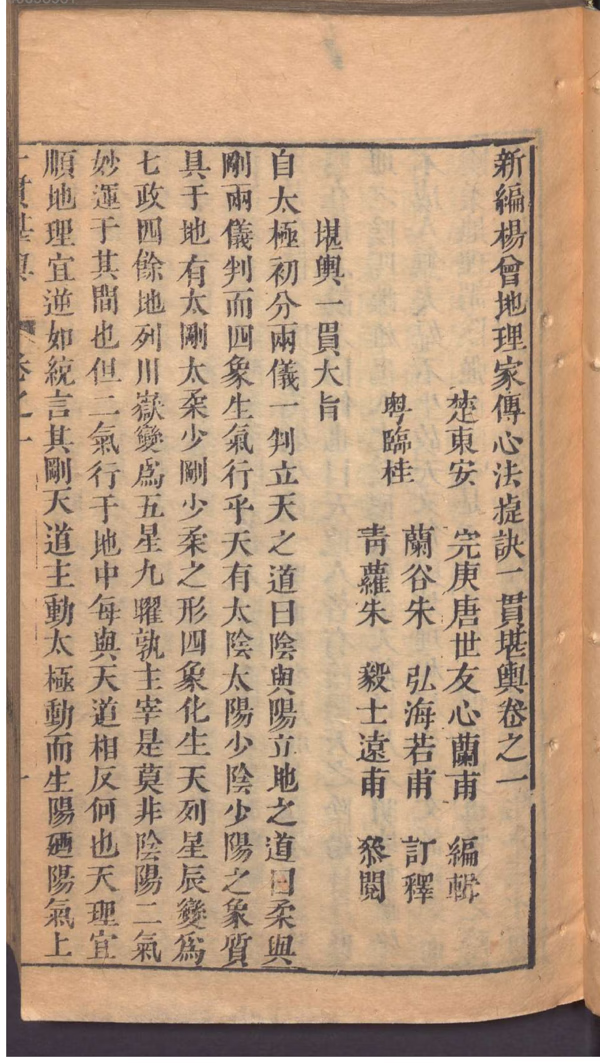 新編楊曾地理家傳心法㨗訣一貫堪輿卷之一
楚東安 完庚唐世友心蘭甫 編輯
粤臨桂 蘭谷朱 弘海若甫 訂釋
青蘿朱 毅士遠甫 叅閱
堪輿一貫大旨
自太極初分兩儀一判立天之道曰陰與陽立地之道曰柔與
剛兩儀判而四象生氣行乎天有太陰太陽少陰少陽之象質
具于地有太剛太柔少剛少柔之形四象化生天列星辰變爲
七政四餘地列川嶽變爲五星九曜孰主宰是莫非陰陽二氣
妙運于其間也但二氣行于地中每與天道相反何也天理宜
順地理宜逆如統言其剛天道主動太極動而生陽廼陽氣上
一貫堪輿 卷之一 一